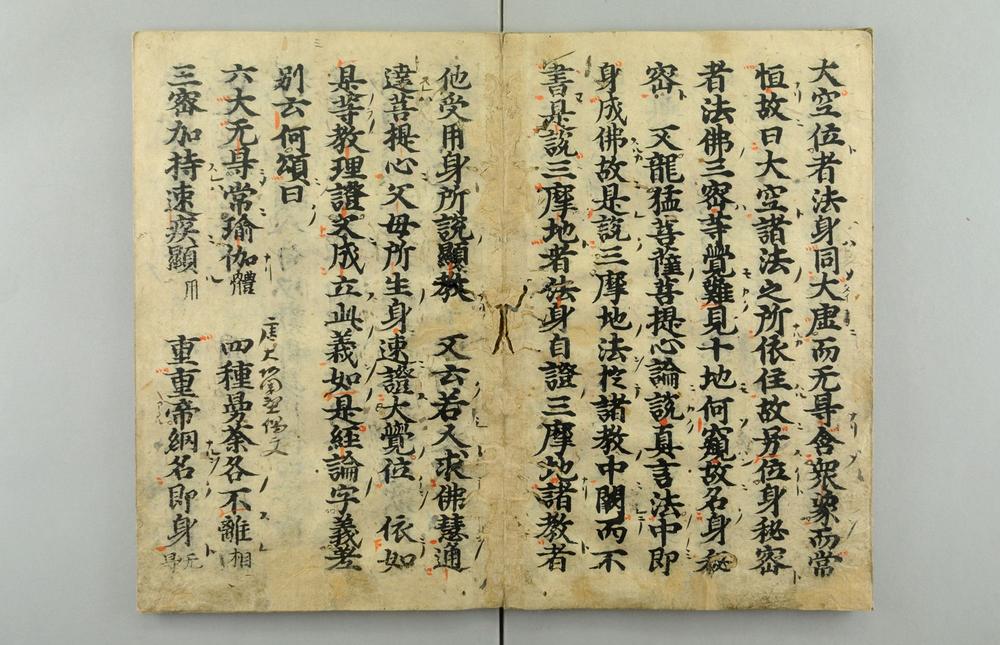 大空位者法身同大虛而无㝵含衆象而常
恒故曰大空諸法之所依住故号位身秘密
者法佛三密等覺難見十地何窺故名身秘
密　又龍猛菩薩菩提心論說真言法中即
身成佛故是說三摩地法於諸教中闕而不
書是說三摩地者法身自證三摩地諸教者
他受用身所說顯教　又云若人求佛慧通
達菩提心父母所生身速證大覺位　依如
是等教理證文成立此義如是經論字義差
別云何頌曰
六大无㝵常瑜伽體　四種曼荼各不離相
三密加持速疾顯用　重重帝網名即身无㝵